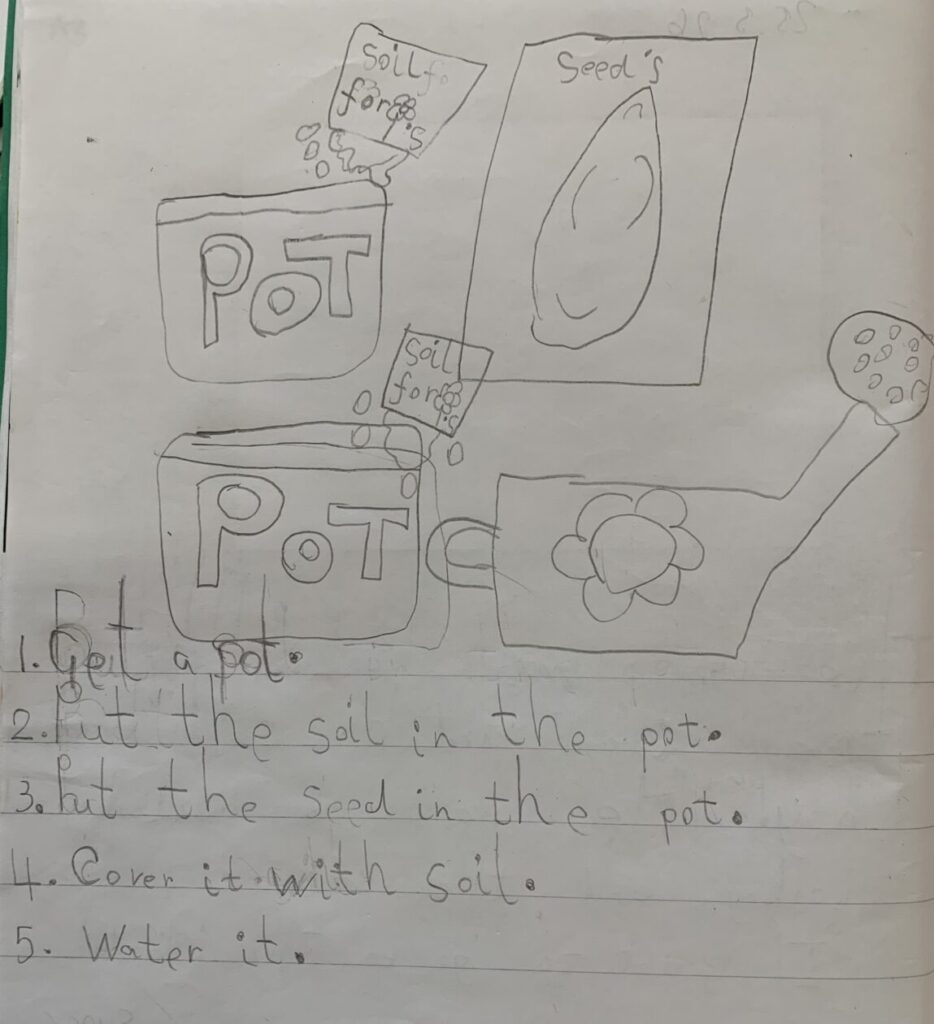 Soil
for 's
Seed's
POT
Soil
for 's
POT
1. Get a pot.
2. Put the soil in the pot.
3. Put the seed in the pot.
4. Cover it with soil.
5. Water it.